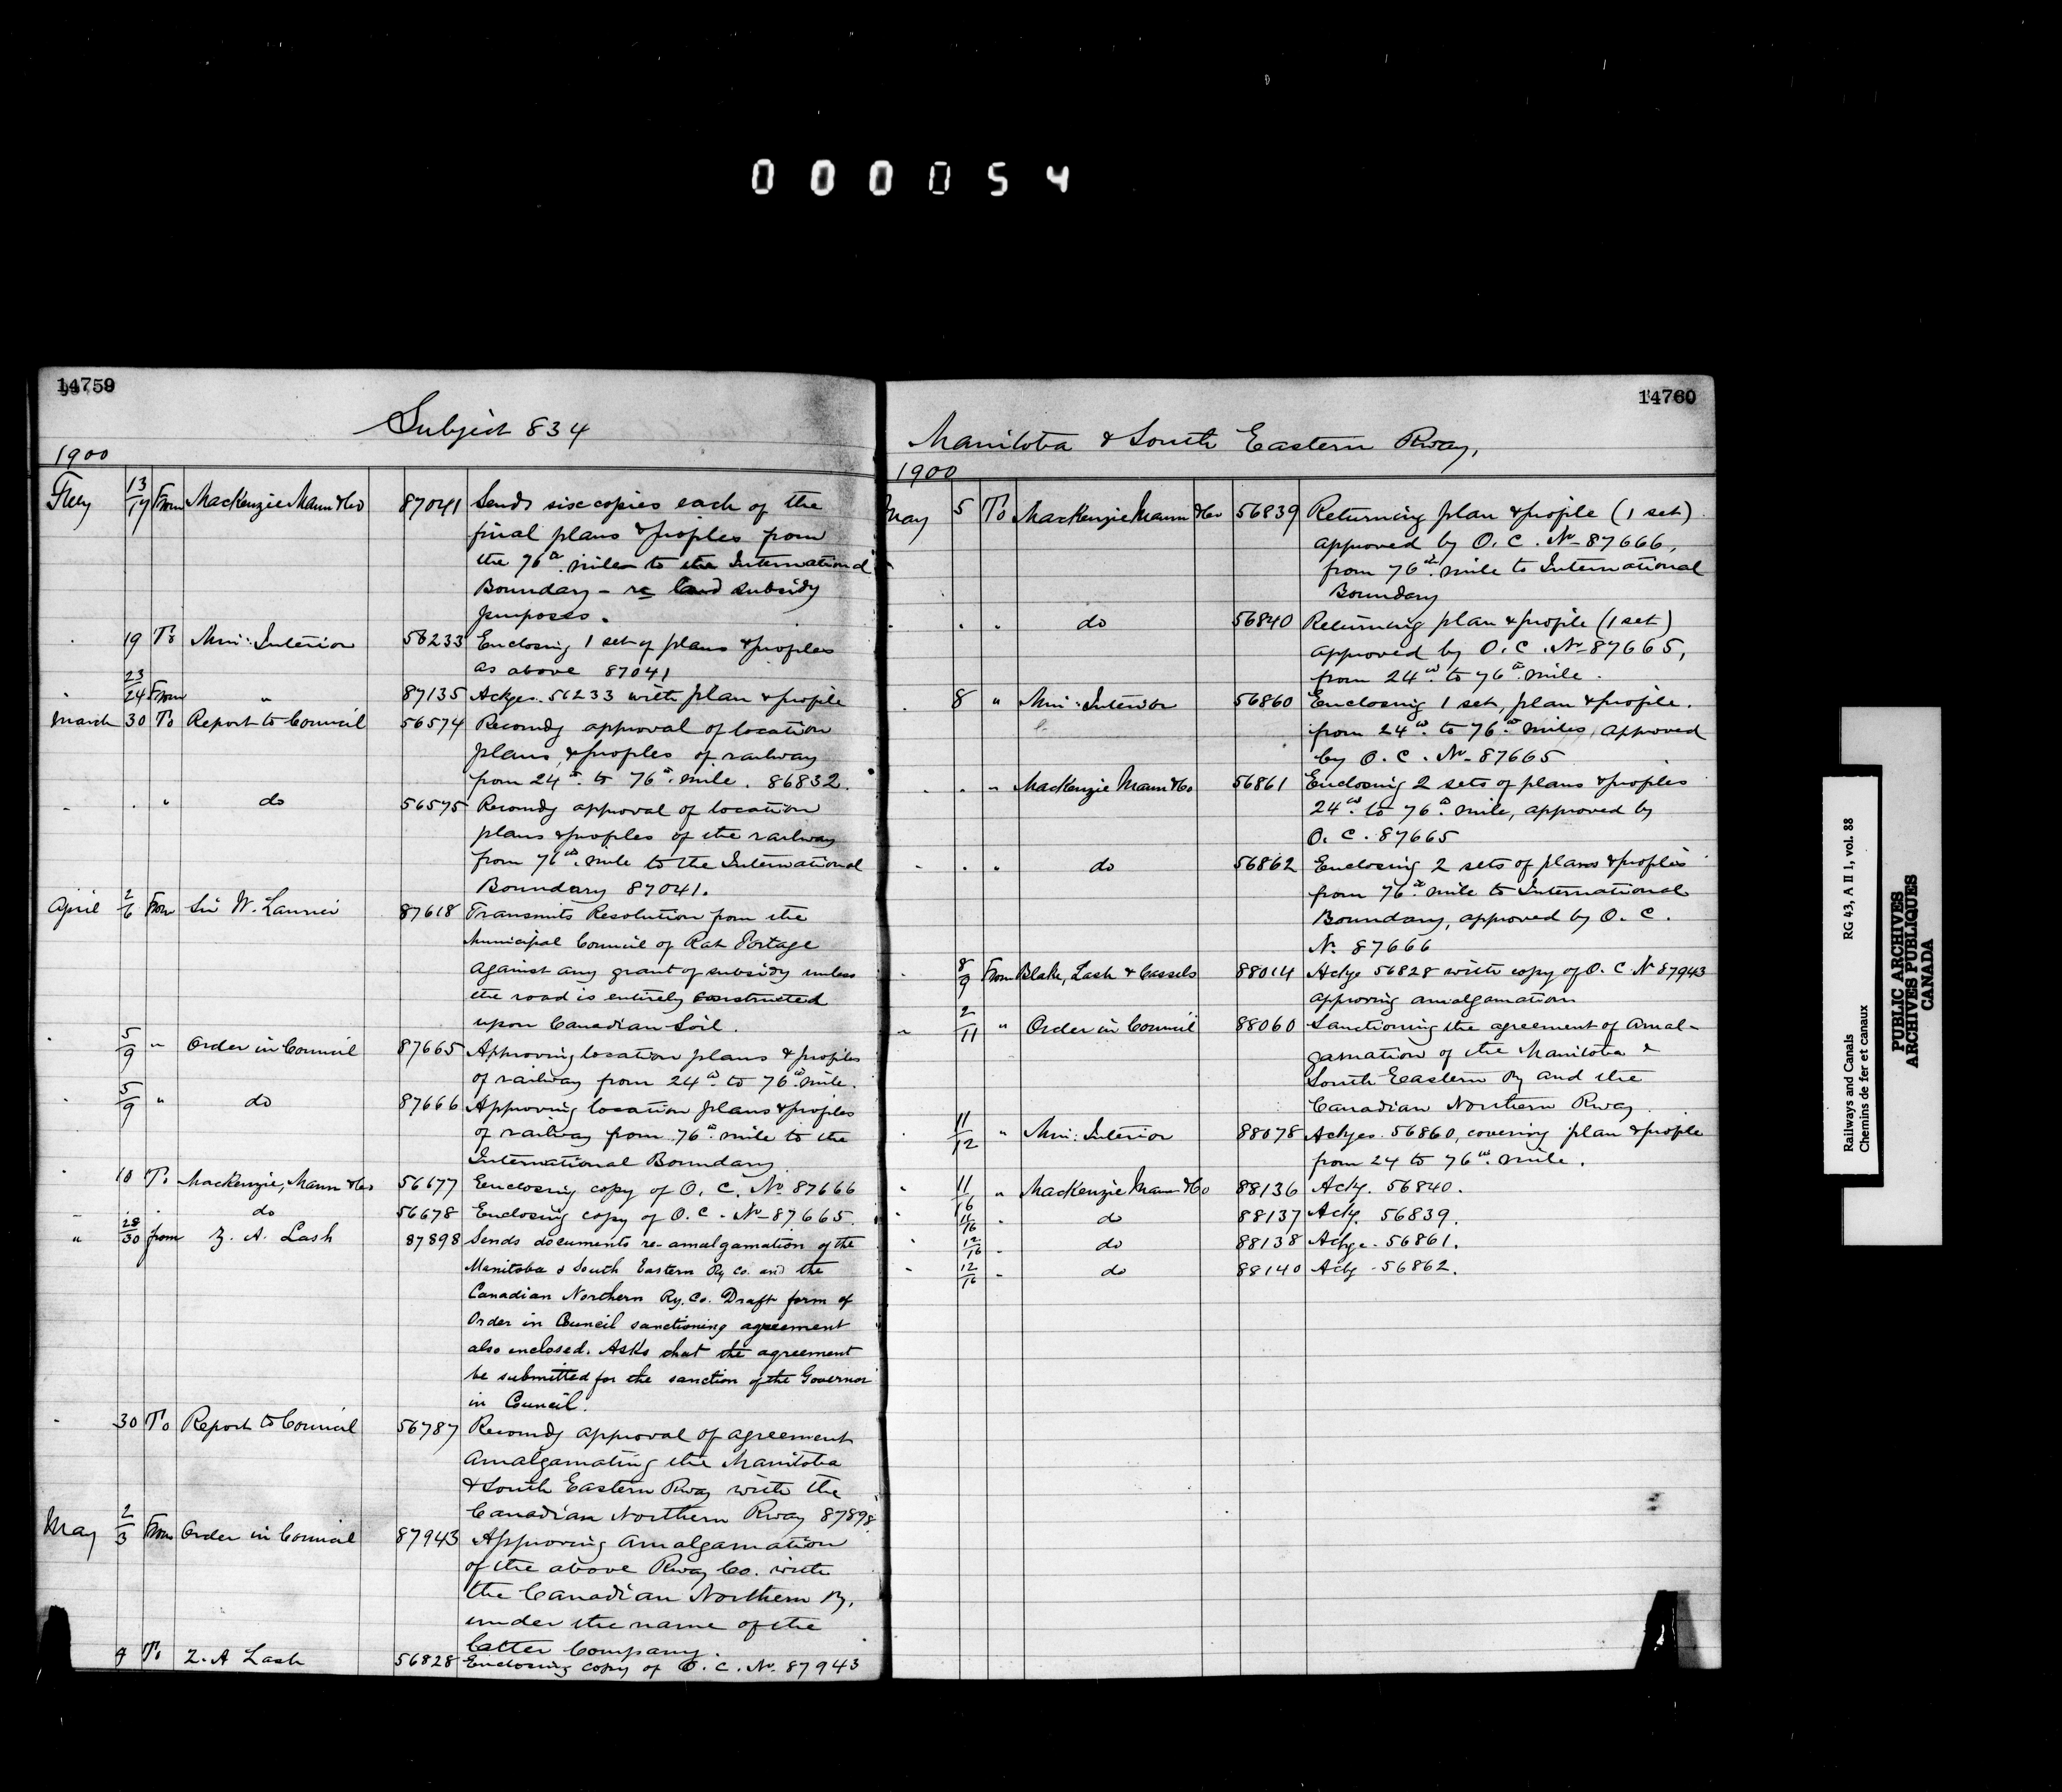 000054
14759
Subject 834
1900
Feby 13/17 From MacKenzie Mann & Co 87041 Sends six copies each of the
final plans & profiles from
the 76th mile to the International
Boundary - re land subsidy
purposes.
" 19 To Min: Interior 56233 Enclosing 1 set of plans & profiles
as above 87041
" 23/24 From " 87135 Ackges. 56233 with plan & profile
March 30 To Report to Council 56574 Recomdg approval of location
plans, & profiles of railway
from 24th to 76th mile. 86832.
" " " do 56575 Recomdg approval of location
plans & profiles of the railway
from 76th mile to the International
Boundary 87041.
April 2/6 From Sir W. Laurier 87618 Transmits Resolution from the
Municipal Council of Rat Portage
against any grant of subsidy unless
the road is entirely constructed
upon Canadian Soil.
" 5/9 " Order in Council 87665 Approving location plans & profiles
of railway from 24th to 76th mile.
" 5/9 " do 87666 Approving location plans & profiles
of railway from 76th mile to the
International Boundary.
" 10 To MacKenzie, Mann & Co 56677 Enclosing copy of O. C. No 87666
" " do 56678 Enclosing copy of O. C. No 87665.
" 28/30 from Z. A. Lash 87898 Sends documents re-amalgamation of the
Manitoba & South Eastern Ry Co. and the
Canadian Northern Ry. Co. Draft form of
Order in Council sanctioning agreement
also enclosed. Asks that the agreement
be submitted for the sanction of the Governor
in Council.
" 30 To Report to Council 56787 Recomdg approval of agreement
amalgamating the Manitoba
& South Eastern Rway with the
Canadian Northern Rway 87898
May 2/3 From Order in Council 87943 Approving amalgamation
of the above Rway Co. with
the Canadian Northern Ry.
under the name of the
latter Company.
To Z. A Lash 56828 Enclosing copy of O. C. No. 87943
14760
Manitoba & South Eastern Rway,
1900
May 5 To MacKenzie Mann & Co 56839 Returning plan & profile (1 set)
approved by O. C. No 87666,
from 76th mile to International
Boundary
" " " do 56840 Returning plan & profile (1 set)
approved by O. C. No 87665,
from 24th to 76th mile.
" 8 " Min: Interior 56860 Enclosing 1 set, plan & profile.
from 24th to 76th miles, approved
by O. C. No 87665
" " " MacKenzie Mann & Co 56861 Enclosing 2 sets of plans & profiles
24th to 76th mile, approved by
O. C. 87665
" " " do 56862 Enclosing 2 sets of plans & profiles
from 76th mile to International
Boundary, approved by O. C.
No. 87666
" 8/9 From Blake, Lash & Cassels 88014 Ackge 56828 with copy of O. C. No 87943
approving amalgamation
" 2/11 " Order in Council 88060 Sanctioning the agreement of amal-
gamation of the Manitoba &
South Eastern Ry and the
Canadian Northern Rway
" 11/12 " Min: Interior 88078 Ackges. 56860, covering plan & profile
from 24 to 76th mile.
" 11/16 " MacKenzie Mann & Co 88136 Ackg. 56840.
" 11/16 " do 88137 Ackg. 56839.
" 12/16 " do 88138 Ackge. 56861.
" 12/16 " do 88140 Ackg 56862.
Railways and Canals RG 43, A II 1, vol. 88
Chemins de fer et canaux
PUBLIC ARCHIVES
ARCHIVES PUBLIQUES
CANADA